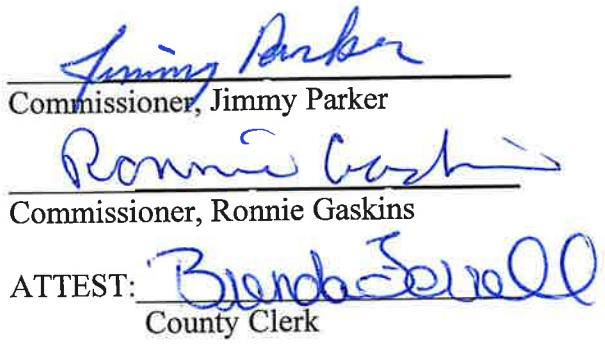 Jimmy Parker
Commissioner, Jimmy Parker
Ronnie Gaskins
Commissioner, Ronnie Gaskins
ATTEST: Brenda
County Clerk